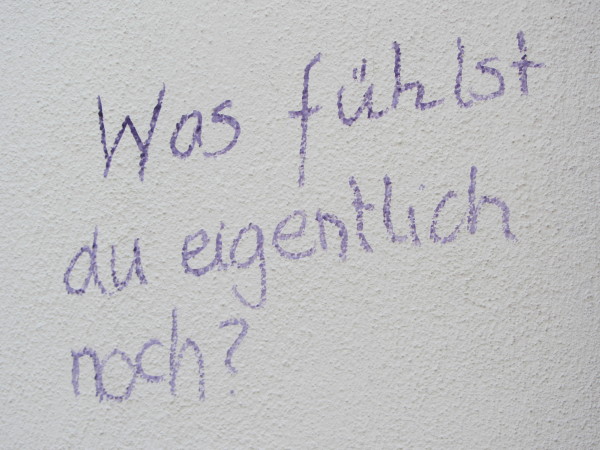 Was fühlst
du eigentlich
noch?